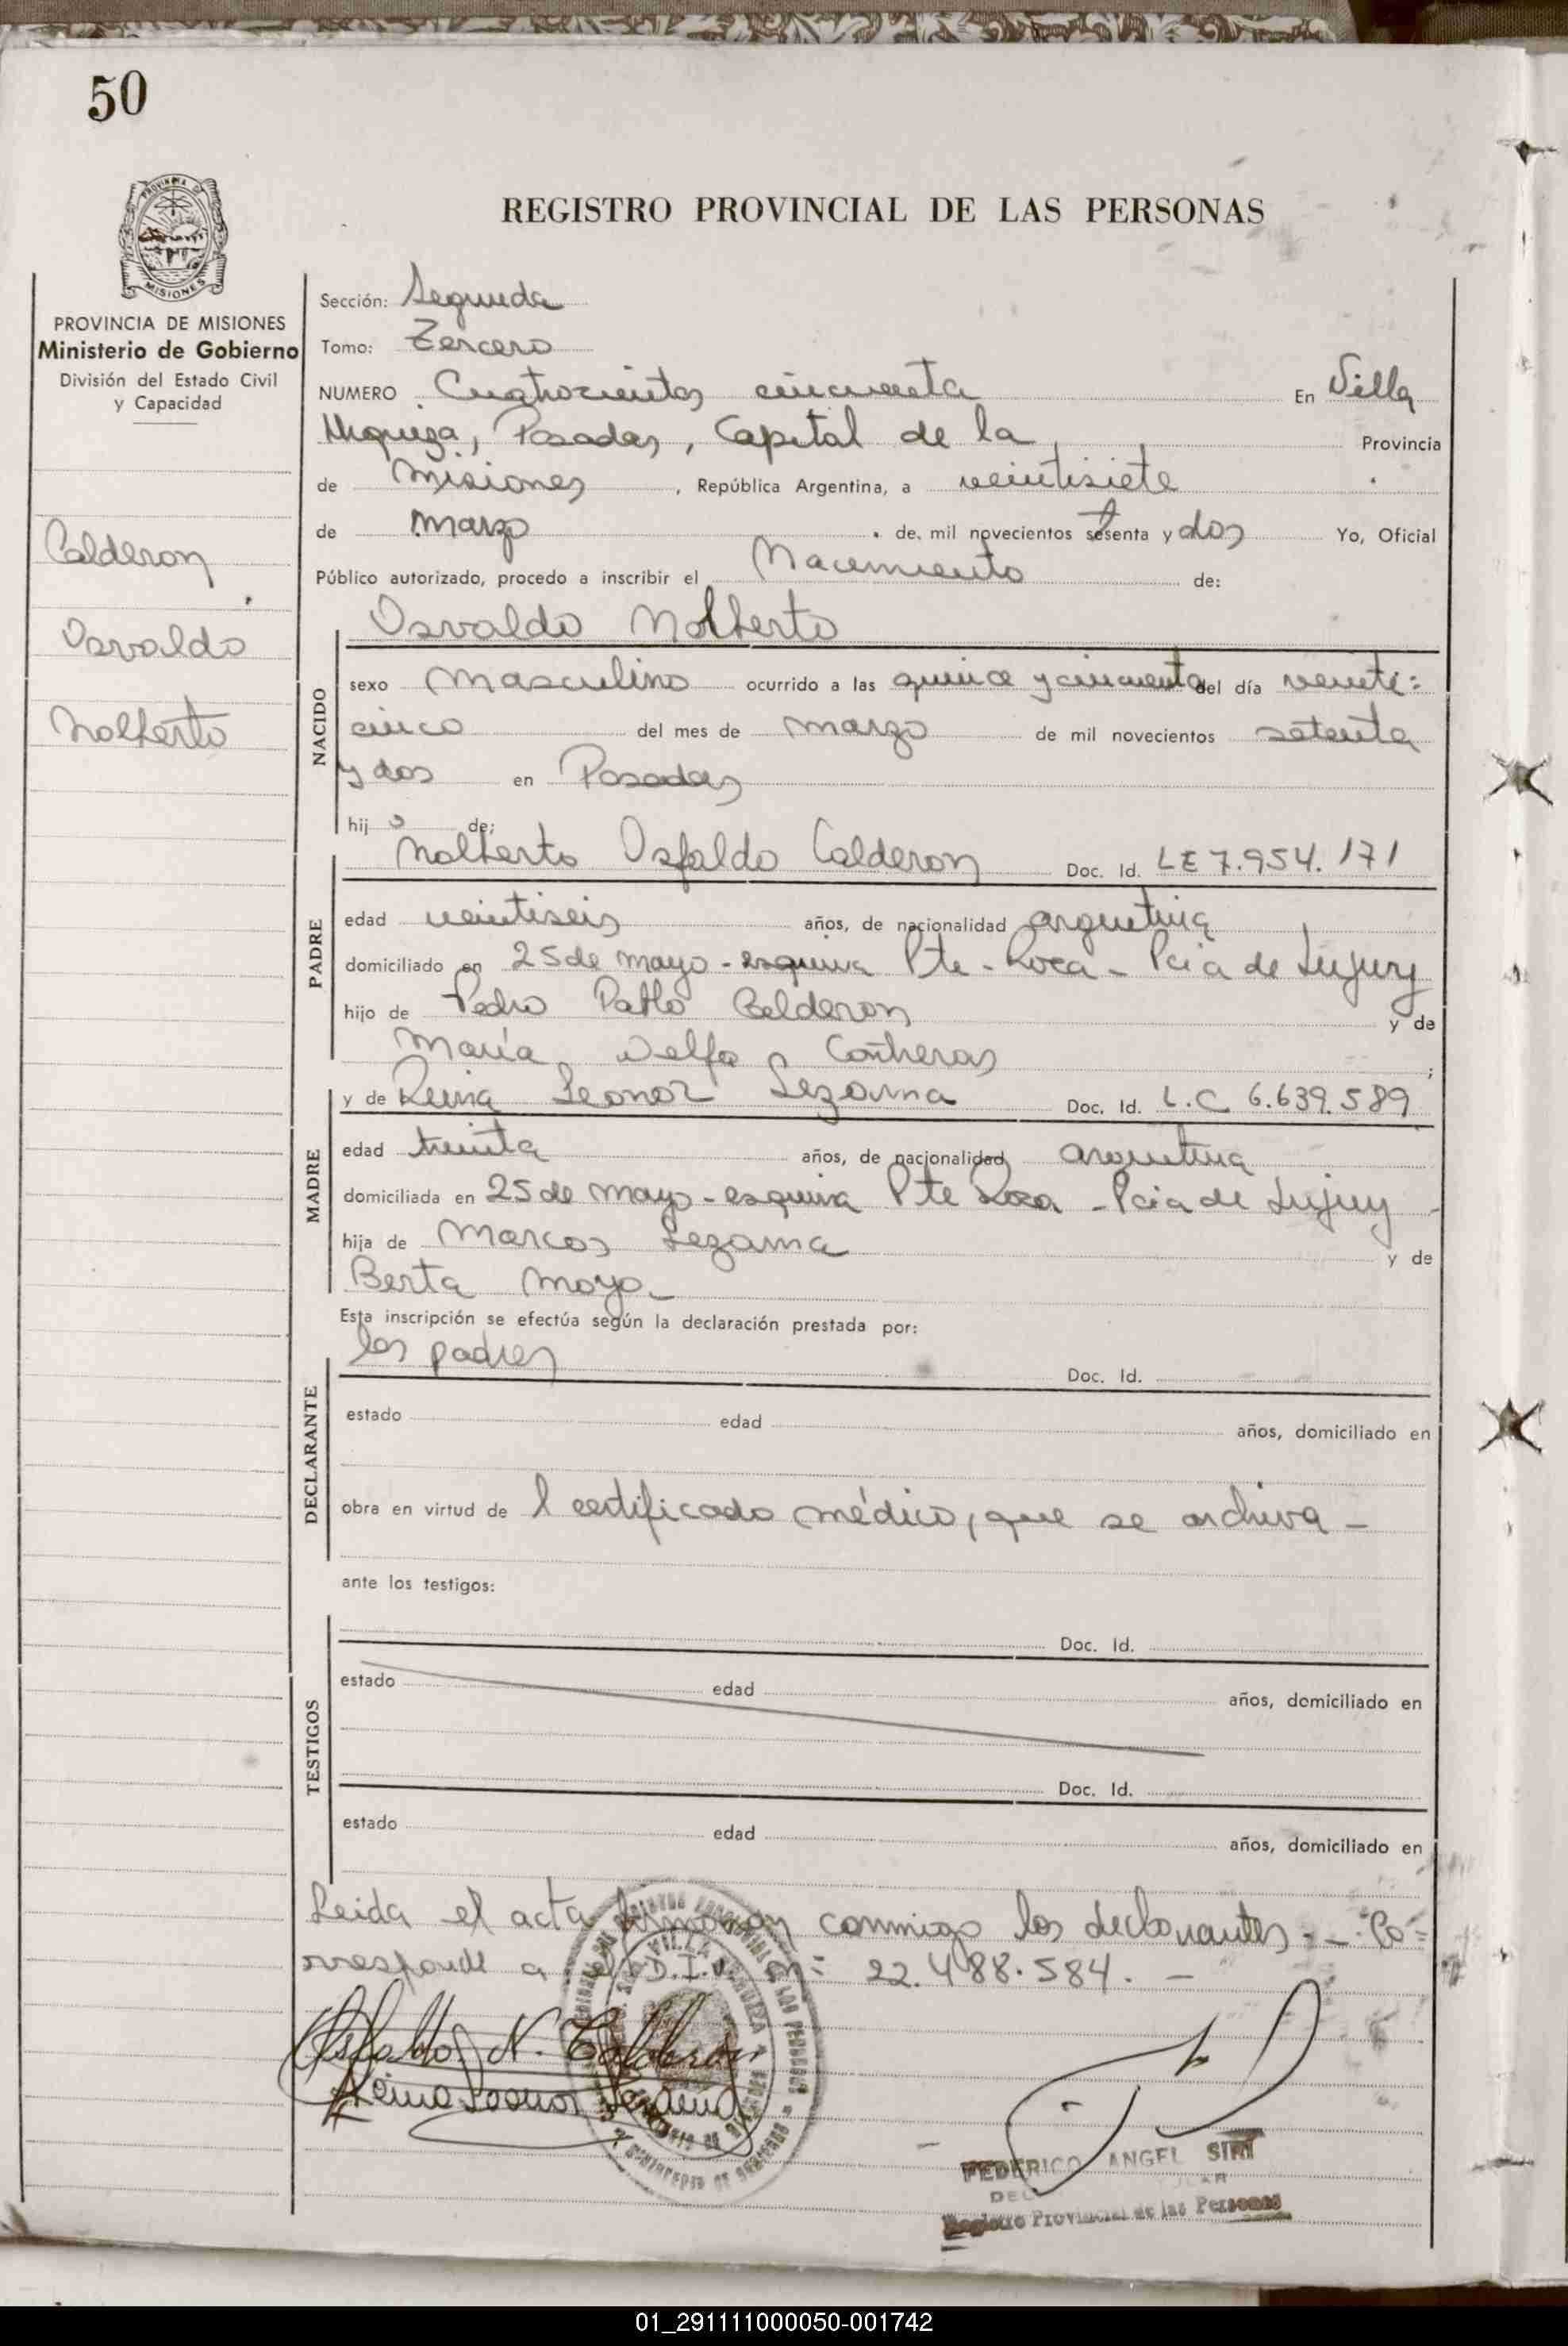 50
PROVINCIA DE
MISIONES
REGISTRO PROVINCIAL DE LAS PERSONAS
PROVINCIA DE MISIONES
Ministerio de Gobierno
División del Estado Civil
y Capacidad
Calderon
Osvaldo
Nolberto
Sección: Segunda
Tomo: Tercero
NUMERO Cuatrocientos cincuenta En Villa
Urquiza, Posadas, Capital de la Provincia
de Misiones, República Argentina, a veintisiete
de marzo de mil novecientos setenta y dos Yo, Oficial
Público autorizado, procedo a inscribir el Nacimiento de:
Osvaldo Nolberto
NACIDO
sexo masculino ocurrido a las quince y cincuenta del día veinti=
cinco del mes de marzo de mil novecientos setenta
y dos en Posadas
hijo de:
Nolberto Osfaldo Calderon Doc. Id. LE 7.954.171
PADRE
edad veintiseis años, de nacionalidad argentina
domiciliado en 25 de mayo - esquina Pte - Roca - Pcia de Jujuy
hijo de Pedro Pablo Calderon y de
María Delfa Contreras;
y de Reina Leonor Lezama Doc. Id. L.C 6.639.589
MADRE
edad treinta años, de nacionalidad argentina
domiciliada en 25 de mayo - esquina Pte Roca - Pcia de Jujuy -
hija de Marcos Lezama y de
Berta Moya -
Esta inscripción se efectúa según la declaración prestada por:
los padres Doc. Id.
DECLARANTE
estado edad años, domiciliado en
obra en virtud de l certificado médico, que se archiva -
ante los testigos:
Doc. Id.
TESTIGOS
estado edad años, domiciliado en
Doc. Id.
estado edad años, domiciliado en
Leida el acta firmaron conmigo los declarantes. - Co=
rresponde a el D.I. n: 22.488.584. -
Osfaldo N. Calderon
Reina Leonor Lezama
FEDERICO ANGEL SIRI
Registro Provincial de las Personas
01_291111000050-001742